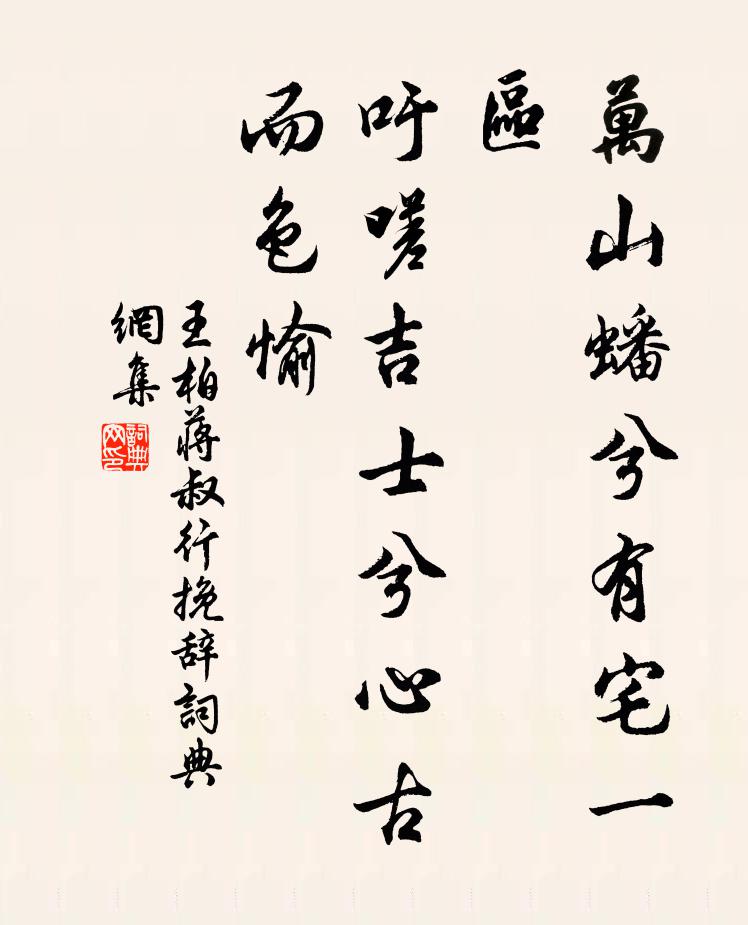 萬山蟠兮有宅一
區
吁嗟吉士兮心古
而色愉
王柏蔣叔行挽辞詞典
網集
詞典
网印